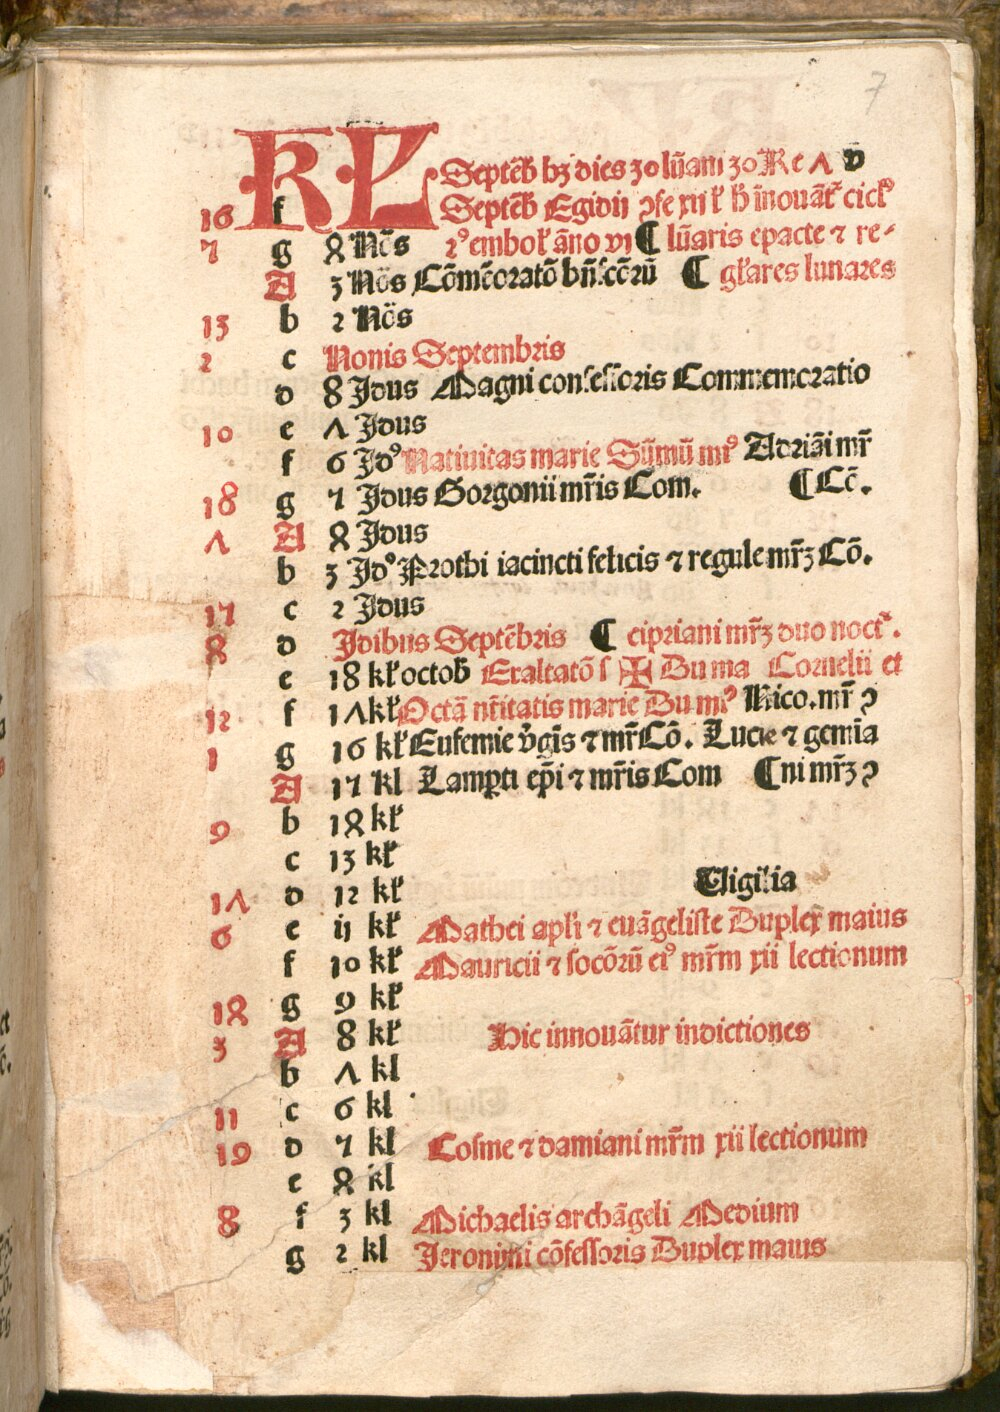 7
KL Septẽb hʒ dies 30 lũam 30 Re Λ D
16 f Septẽb Egidij ↄfe xij ł h̄ ĩnouãt᷑ cickꝰ
7 g 8 Nõs ꝛꝰ emboł ãno vi ¶ lũaris epacte ⁊ re-
A 3 Nõs Cõmẽoratõ bñ.scõrũ ¶ głares lunares
13 b 2 Nõs
2 c Nonis Septembris
d 8 Jdus Magni confessoris Commemoratio
10 e Λ Jdus
f 6 Jdꝰ Natiuitas marie Sũmũ mꝛꝰ Adriãi mr̃
18 g 7 Jdus Gorgonii mr̃is Com. ¶ Cõ.
Λ A 8 Jdus
b 3 Jdꝰ Prothi iacincti felicis ⁊ regule mr̃ʒ Cõ.
17 c 2 Jdus
8 d Jdibus Septẽbris ¶ cipriani mr̃ʒ duo noct᷑.
e 18 kł octob Exaltatõ s ✠ Du ma Cornelii et
12 f 1Λ kł Octã nr̃itatis marie Du mꝛꝰ Nico. mr̃ ↄ
1 g 16 kł Eufemie ṽgĩs ⁊ mr̃ Cõ. Lucie ⁊ gemĩa
A 17 kl Lamꝑti ep̃i ⁊ mr̃is Com ¶ ni mr̃ʒ ↄ
9 b 18 kł
c 13 kł
1Λ d 12 kł Uigilia
6 e ij kł Mathei apłi ⁊ euãgeliste Duplex maius
f 10 kł Mauricii ⁊ socõrũ eiꝰ mr̃m xii lectionum
18 g 9 kł
3 A 8 kł Hic innouãtur indictiones
b Λ kl
11 c 6 kl
19 d 7 kl Cosme ⁊ damiani mr̃m xii lectionum
e 8 kl
8 f 3 kl Michaelis archãgeli Medium
g 2 kl Jeronimi cõfessoris Duplex maius